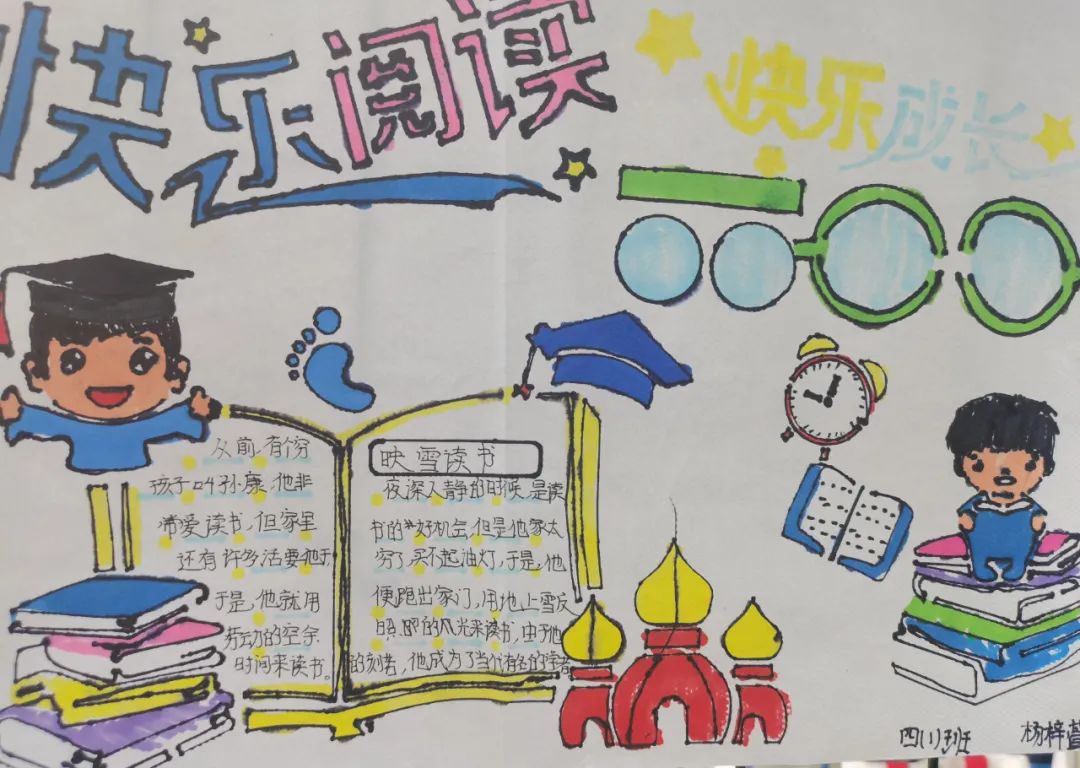 快乐阅读
快乐成长
从前,有个穷
孩子叫孙康,他非
常爱读书,但家里
还有许多活要他干
于是,他就用
劳动的空余
时间来读书。
映雪读书
夜深人静的时候,是读
书的好机会,但是他家太
穷了,买不起油灯,于是,他
便跑出家门,用地上雪反
的光来读书,由于他
的刻苦,他成为了当代有名的学者
四(1)班
杨梓萱